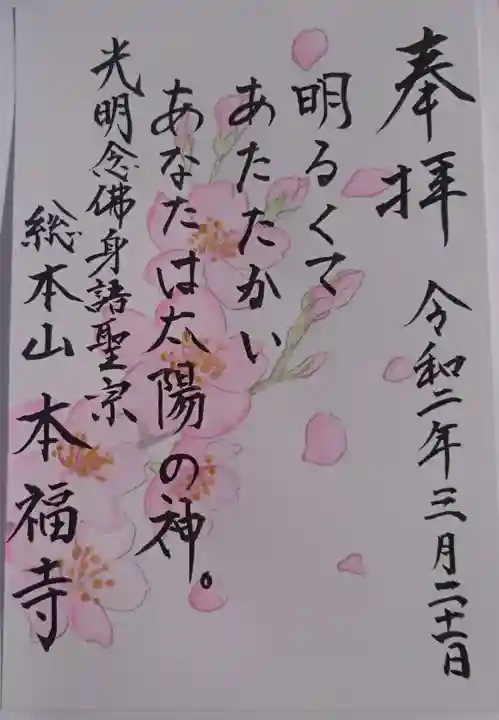 奉拝
令和二年三月二十一日
明るくて
あたたかい
あなたは太陽の神。
光明念佛身諸聖宗
総本山 本福寺